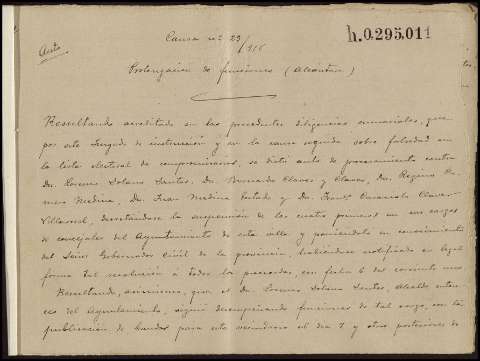 Auto
Causa nº 23/916
h.0.295.011
Prolongación de funciones (Alcántara)
Resultando acreditado en las precedentes diligencias sumariales, que
por este Juzgado de instrucción y en la causa seguida sobre falsedad en
la lista electoral de compromisarios, se dictó auto de procesamiento contra
Dn. Lorenzo Solano Santos, Dn. Bernardo Claver y Claver, Dn. Regino Ro-
mero Medina, Dn. Fran. Medina Hurtado y Dn. Claver
Villarroel, decretándose la suspensión de los cuatro primeros en sus cargos
de concejales del Ayuntamiento de esta villa y poniéndolo en conocimiento
del Señor Gobernador Civil de la provincia, habiéndose notificado en legal
forma tal resolución á todos los procesados, con fecha 6 del corriente mes
Resultando, asimismo, que el Dn. Lorenzo Solano Santos, Alcalde enton-
ces del Ayuntamiento, siguió desempeñando funciones de tal cargo, con la
publicación de bandos para este vecindario el día 7 y otros posteriores de